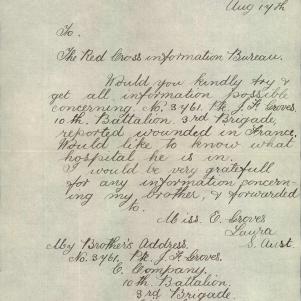 Aug 17th
To.
The Red Cross information Bureau.
Would you kindly try &
get all information possible
concerning. No. 3761. Pte. J. F. Groves.
10th. Battalion. 3rd Brigade,
reported wounded in France.
Would like to know what
hospital he is in.
I would be very gratefull
for any information concern-
ing my brother, & forwarded
to.
Miss. E. Groves
Laura
S. Aust.
My Brother's Address.
No. 3761. Pte. J. F. Groves.
C. Company.
10th Battalion.
3rd Brigade